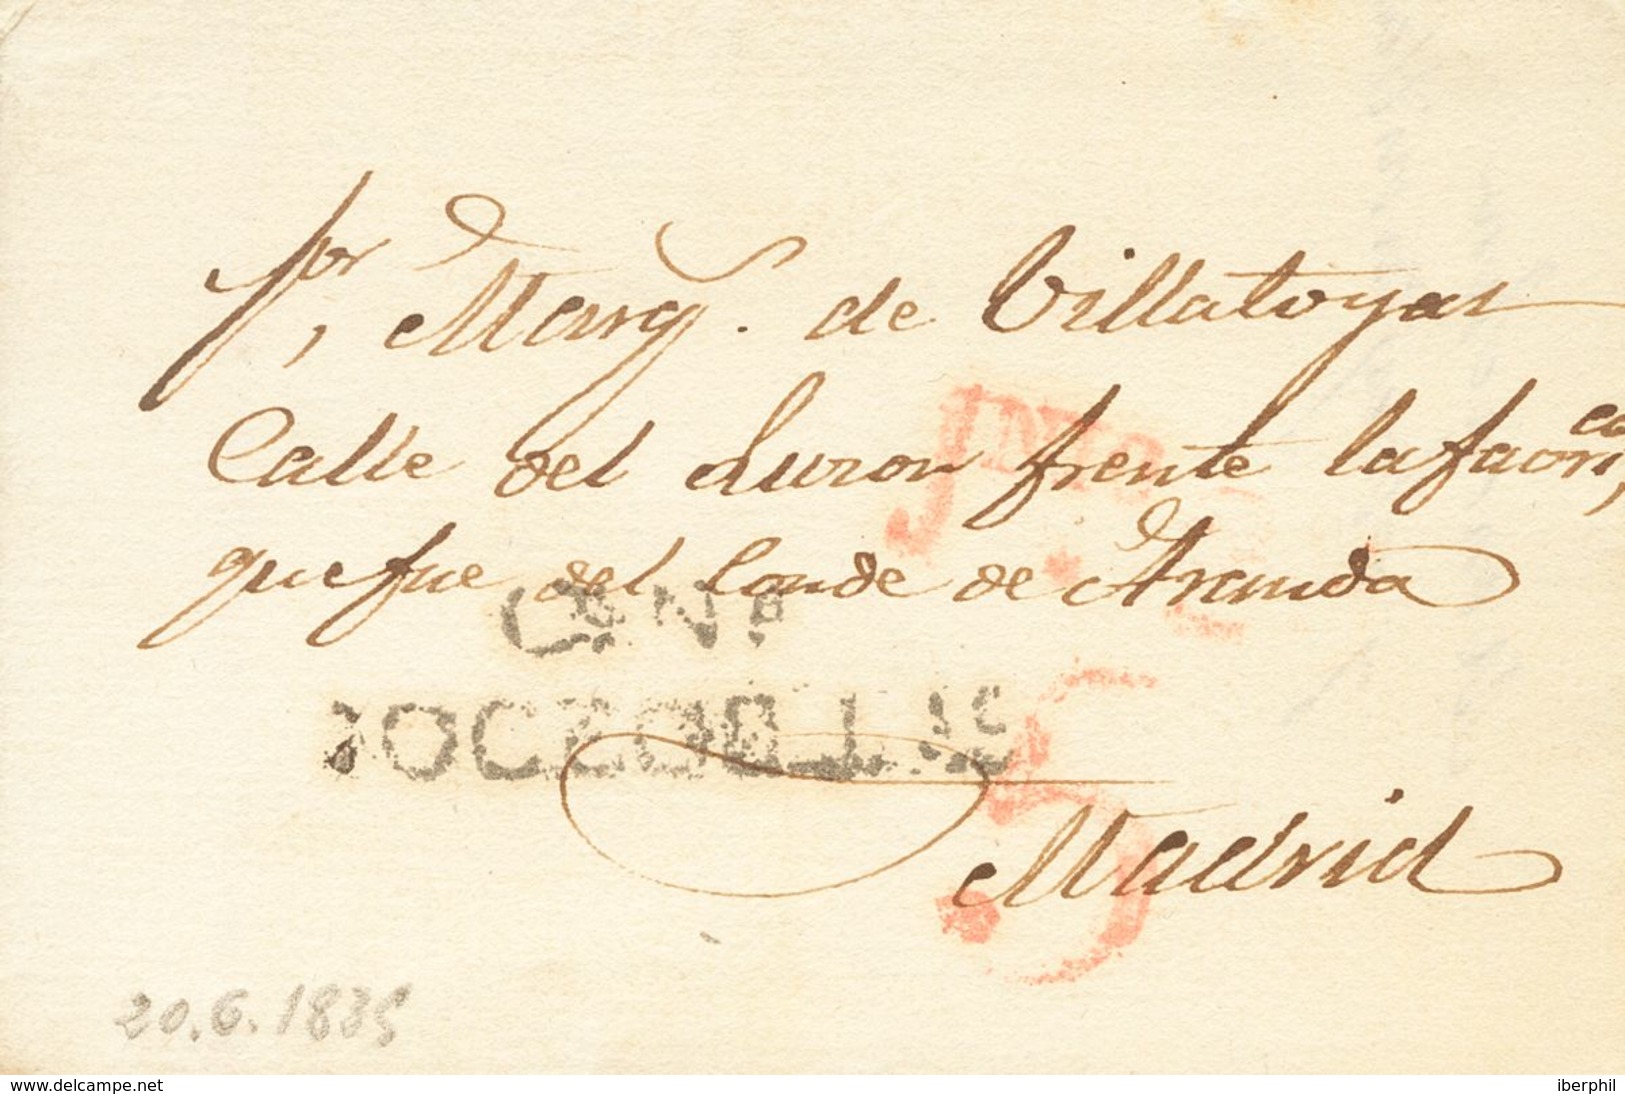 Sor, Marq. de Villatoyas
Calle del Luzon frente la faoric,
que fue del Conde de Aranda
Madrid
20.6.1835
www.delcampe.net
iberphil